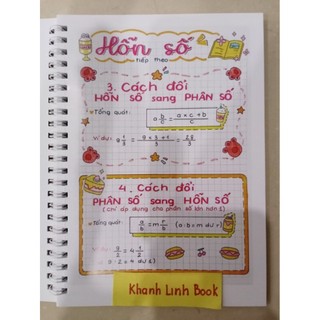 Hỗn số
tiếp theo
3. Cách đổi
HỖN SỐ sang PHÂN SỐ
Tổng quát: a b/c = a x c + b / c
Ví dụ: 9 1/3 = 9 x 3 + 1 / 3 = 28/3
4. Cách đổi
PHÂN SỐ sang HỖN SỐ
(chỉ áp dụng cho phân số lớn hơn 1)
Tổng quát: a/b = m r/b (a:b = m dư r)
9/2 = 4 1/2
9 : 2 = 4 dư 1)
Khanh Linh Book